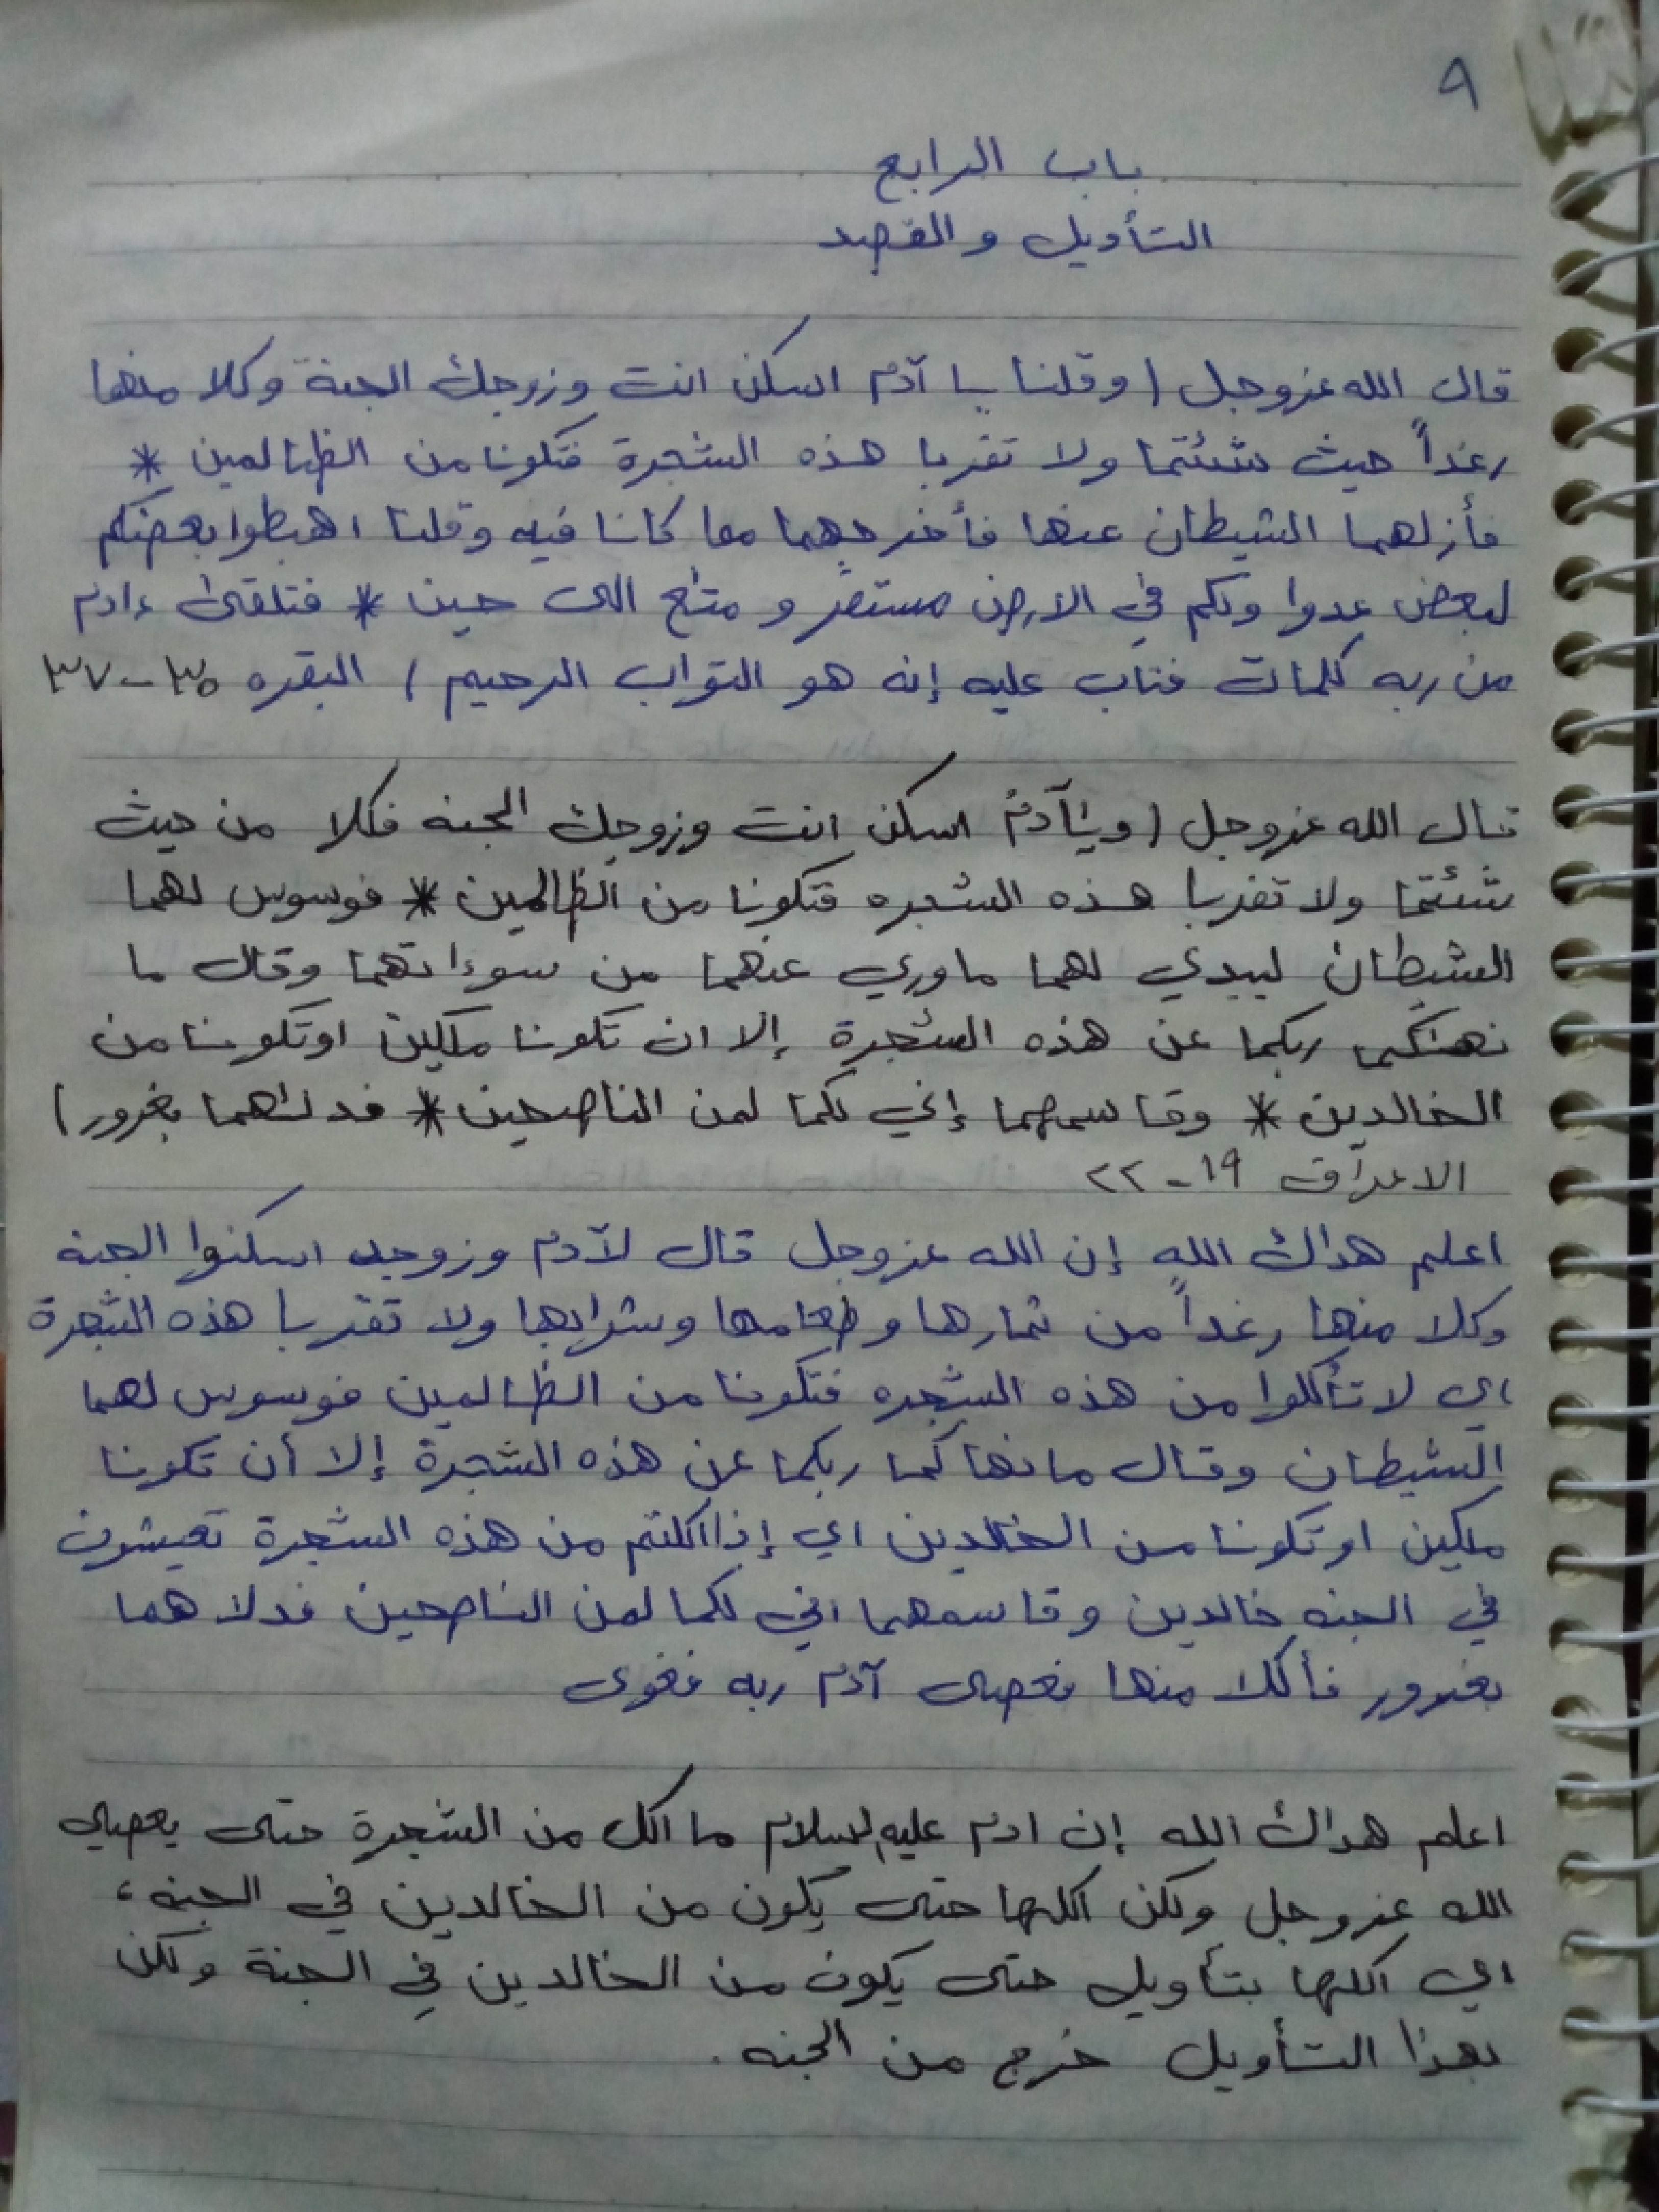 ٩
باب الرابع
التأويل والقصد
قال الله عزوجل (وقلنا يا آدم اسكن انت وزوجك الجنة وكلا منها
رغداً حيث شئتما ولا تقربا هذه الشجرة فتكونا من الظالمين *
فأزلهما الشيطان عنها فأخرجهما مما كانا فيه وقلنا اهبطوا بعضكم
لبعض عدوا ولكم في الارض مستقر و متٰع الى حين * فتلقىٰ ءادم
من ربه كلمات فتاب عليه إنه هو التواب الرحيم) البقره ٣٥-٣٧
قال الله عزوجل (ويٰآدمُ اسكن انت وزوجك الجنه فكلا من حيث
شئتما ولا تقربا هذه الشجره فتكونا من الظالمين * فوسوس لهما
الشيطان ليبدي لهما ماوري عنهما من سوءاتهما وقال ما
نهىٰكما ربكما عن هذه الشجرة إلا ان تكونا ملكين اوتكونا من
الخالدين * وقاسمهما إني لكما لمن الناصحين * فدلىٰهما بغرور)
الاعراف ١٩-٢٢
اعلم هداك الله إن الله عزوجل قال لآدم وزوجه اسكنوا الجنه
وكلا منها رغداً من ثمارها وطعامها وشرابها ولا تقربا هذه الشجرة
اي لا تأكلوا من هذه الشجره فتكونا من الظالمين فوسوس لهما
الشيطان وقال مانهاكما ربكما عن هذه الشجرة إلا أن تكونا
ملكين اوتكونا من الخالدين اي إذا اكلتم من هذه الشجرة تعيشون
في الجنه خالدين وقاسمهما اني لكما لمن الناصحين فدلاهما
بغرور فأكلا منها فعصى آدم ربه فغوى
اعلم هداك الله إن ادم عليه السلام ما اكل من الشجرة حتى يعصي
الله عزوجل ولكن اكلها حتى يكون من الخالدين في الجنه،
اي اكلها بتأويل حتى يكون من الخالدين في الجنة ولكن
بهذا التأويل خرج من الجنه.